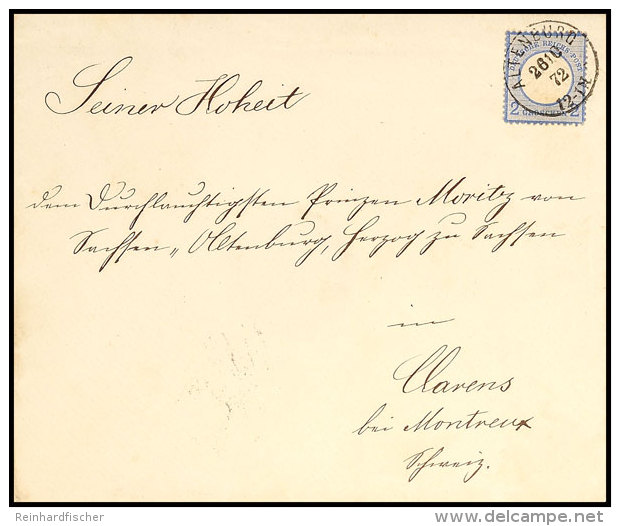 ALTENBURG
26 10
72
12-1N
DEUTSCHE REICHS-POST
2 GROSCHEN 2
Seiner Hoheit
dem Durchlauchtigsten Prinzen Moritz von
Sachsen-Altenburg, Herzog zu Sachsen
in
Clarens
bei Montreux
Schweiz.
Reinhardfischer
delcampe.net